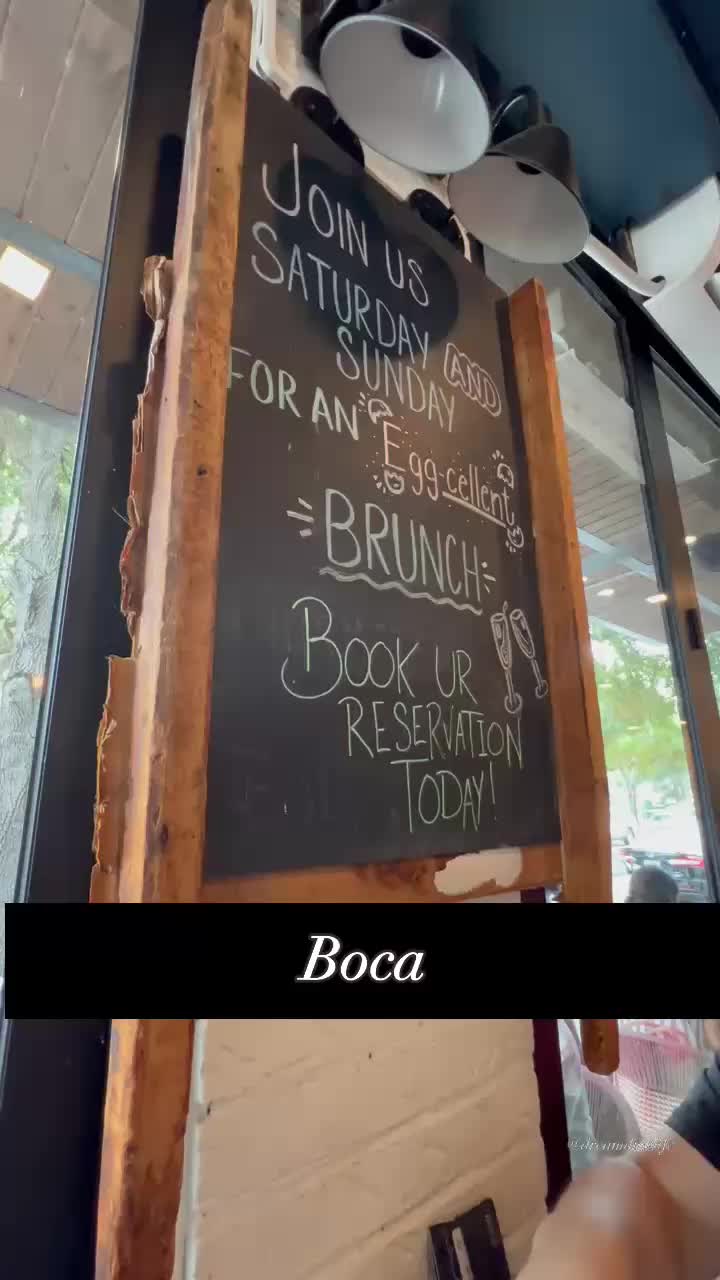 JOIN US
SATURDAY AND
SUNDAY
FOR AN
Egg-cellent
BRUNCH
BOOK UR
RESERVATION
TODAY!
Boca